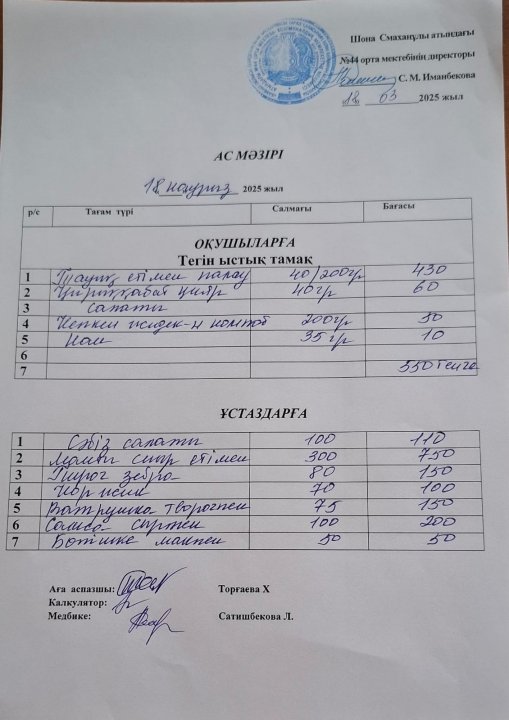 Шона Смаханұлы атындағы
№44 орта мектебінің директоры
С. М. Иманбекова
18 03 2025 жыл
АС МӘЗІРІ
18 наурыз 2025 жыл
р/с Тағам түрі Салмағы Бағасы
ОҚУШЫЛАРҒА
Тегін ыстық тамақ
1 Тауық етімен палау 40/200гр 430
2 Қырыққабат қияр 40гр 60
3 салаты
4 Кепкен жидек-н компот 200гр 50
5 Нан 35гр 10
6
7 550 теңге
ҰСТАЗДАРҒА
1 Сәбіз салаты 100 110
2 сиыр етімен 300 750
3 Пирог зебра 80 150
4 70 100
5 Ватрушка творогпен 75 150
6 Самса 100 200
7 Бәтішке макпен 50 50
Аға аспазшы: Торғаева Х
Калкулятор:
Медбике: Сатишбекова Л.